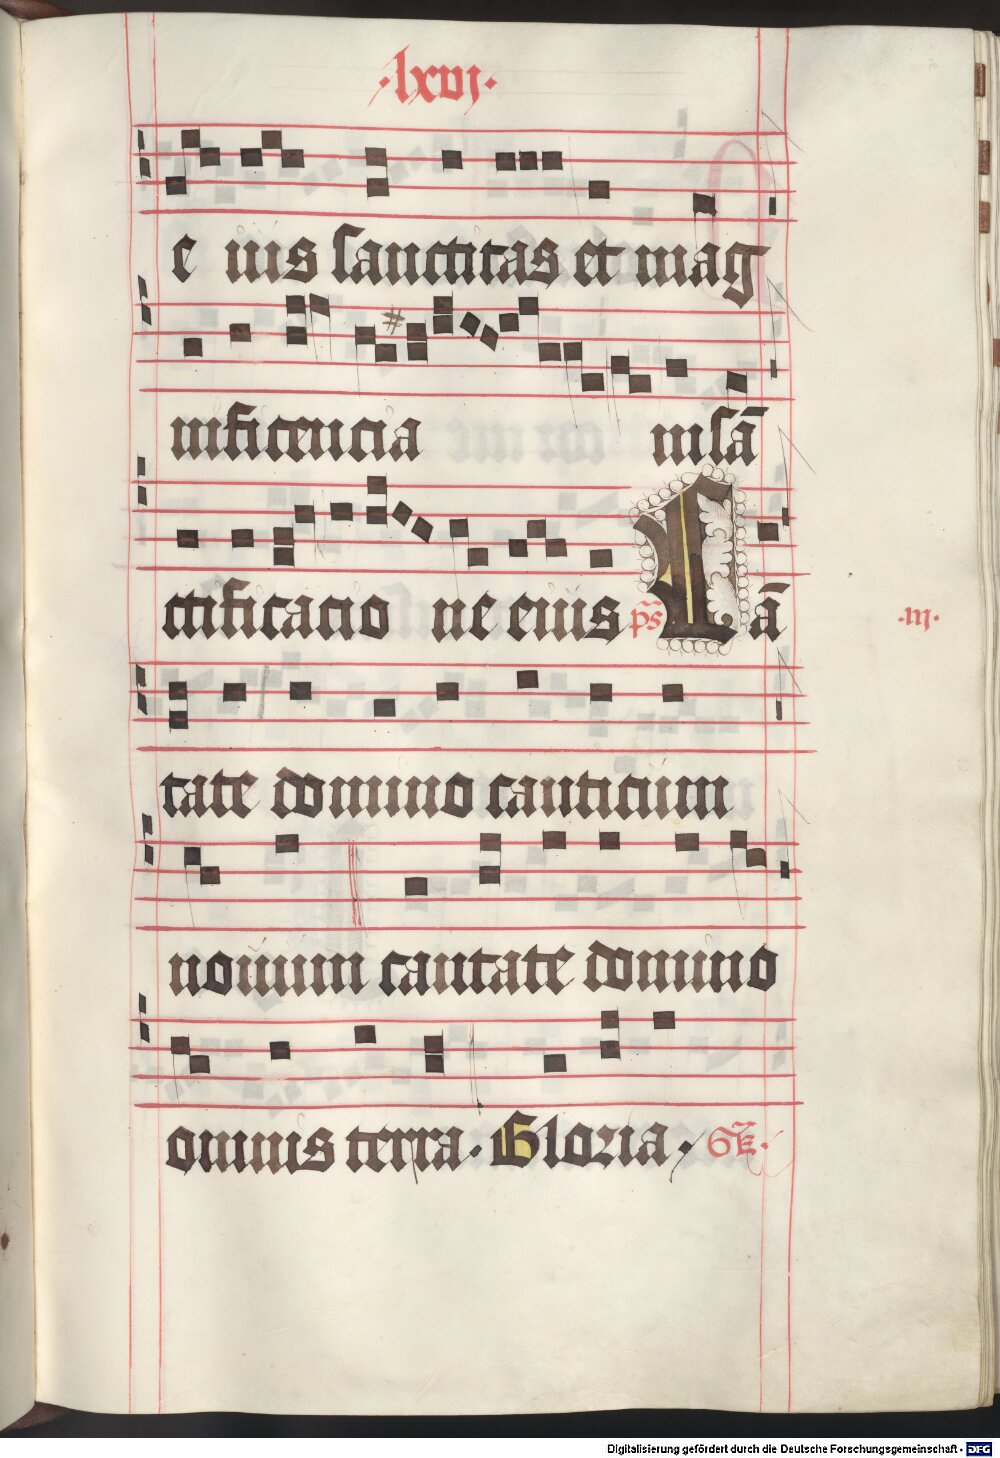 ·lxvj·
e ius sanctitas et mag
nificencia in sā
ctificacio ne eius p̄s Cā
·iij·
tate domino canticum
nouum cantate domino
omnis terra· Gloria·
Digitalisierung gefördert durch die Deutsche Forschungsgemeinschaft - DFG